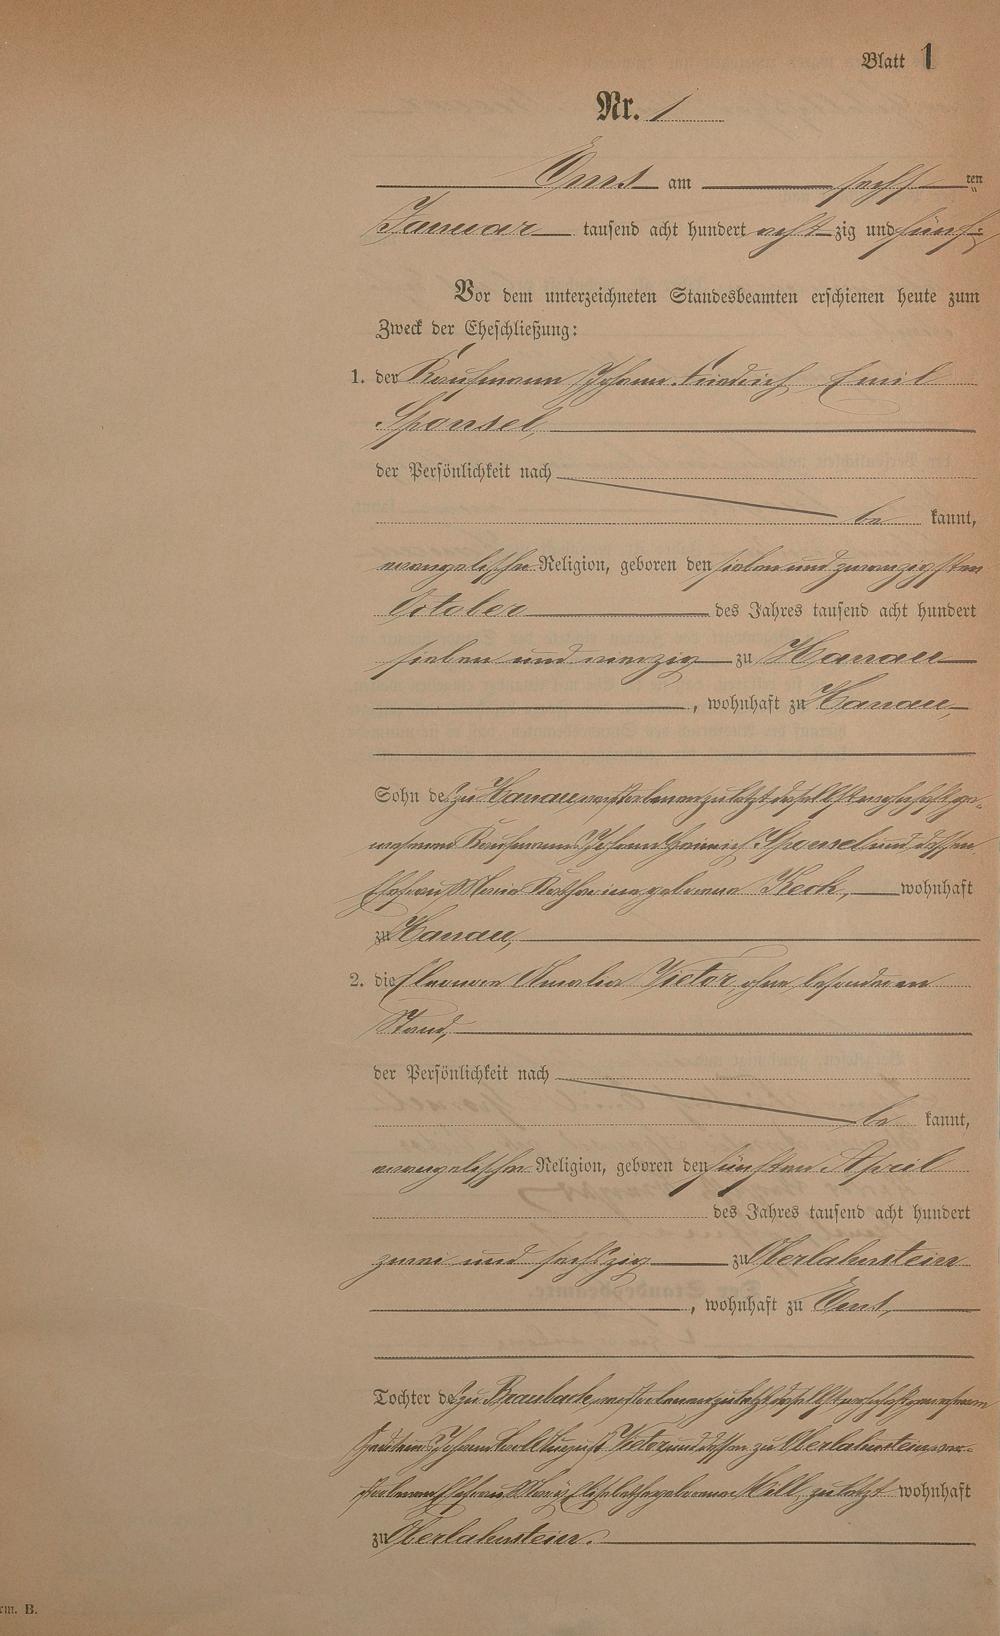 Blatt 1
Nr. 1
Ems am sechs ten
Januar tausend acht hundert acht zig und fünf.
Vor dem unterzeichneten Standesbeamten erschienen heute zum
Zweck der Eheschließung:
1. der Kaufmann Johann Friedrich Emil
Sponsel,
der Persönlichkeit nach
be kannt,
evangelischer Religion, geboren den sieben und zwanzigsten
October des Jahres tausend acht hundert
sieben und vierzig zu Hanau
, wohnhaft zu Hanau,
Sohn des zu Hanau verstorbenen zuletzt daselbst wohnhaft ge-
wesenen Kaufmanns Johann Heinrich Sponsel und dessen
Ehefrau Maria Katharina geborene Keck, wohnhaft
zu Hanau,
2. die Eleonore Amalia Vietor, ohne besonderen
Stand,
der Persönlichkeit nach
be kannt,
evangelischer Religion, geboren den fünften April
des Jahres tausend acht hundert
zwei und sechszig zu Oberlahnstein
, wohnhaft zu Ems,
Tochter des zu Braubach verstorbenen zuletzt daselbst wohnhaft gewesenen
Johann Carl August Vietor und dessen zu Oberlahnstein ver-
storbenen Ehefrau geborene zuletzt wohnhaft
zu Oberlahnstein.
rm. B.